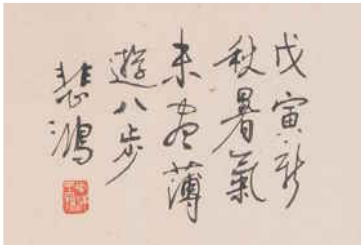 戊寅新
秋暑氣
未盡薄
遊八步
悲鴻